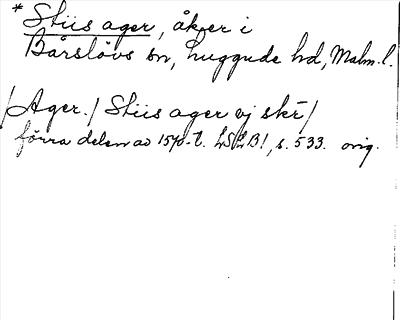 * Stiis ager, åker i
Bårslövs sn, Luggude hd, Malm. l.
/Ager./ Stiis ager vj skr/
förra delen av 1570-t. LSLB1, s. 533. orig.